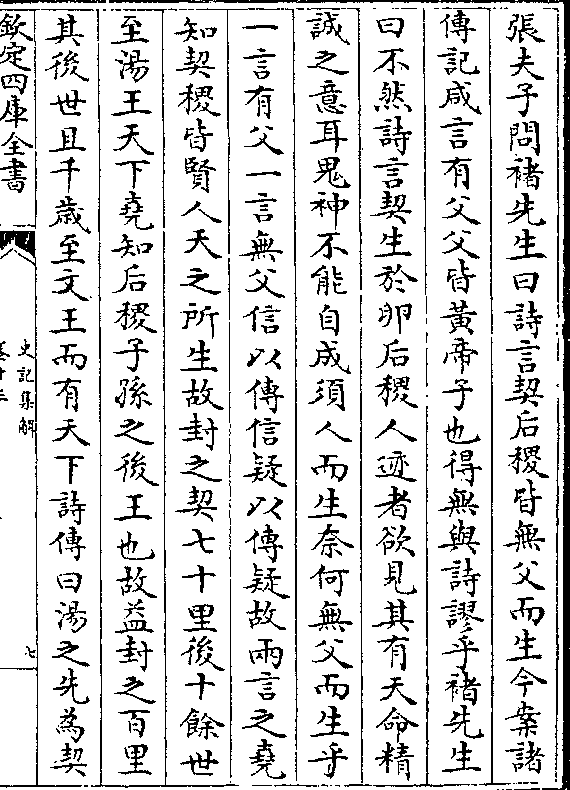 張夫子問褚先生曰詩言契后稷皆無父而生今案諸
傳記咸言有父父皆黃帝子也得無與詩謬乎褚先生
曰不然詩言契生於卵后稷人迹者欲見其有天命精
誠之意耳鬼神不能自成須人而生奈何無父而生乎
一言有父一言無父信以傳信疑以傳疑故兩言之堯
知契稷皆賢人天之所生故封之契七十里後十餘世
至湯王天下堯知后稷子孫之後王也故益封之百里
其後世且千歲至文王而有天下詩傳曰湯之先為契
欽定四庫全書
史記集解
卷十三
七